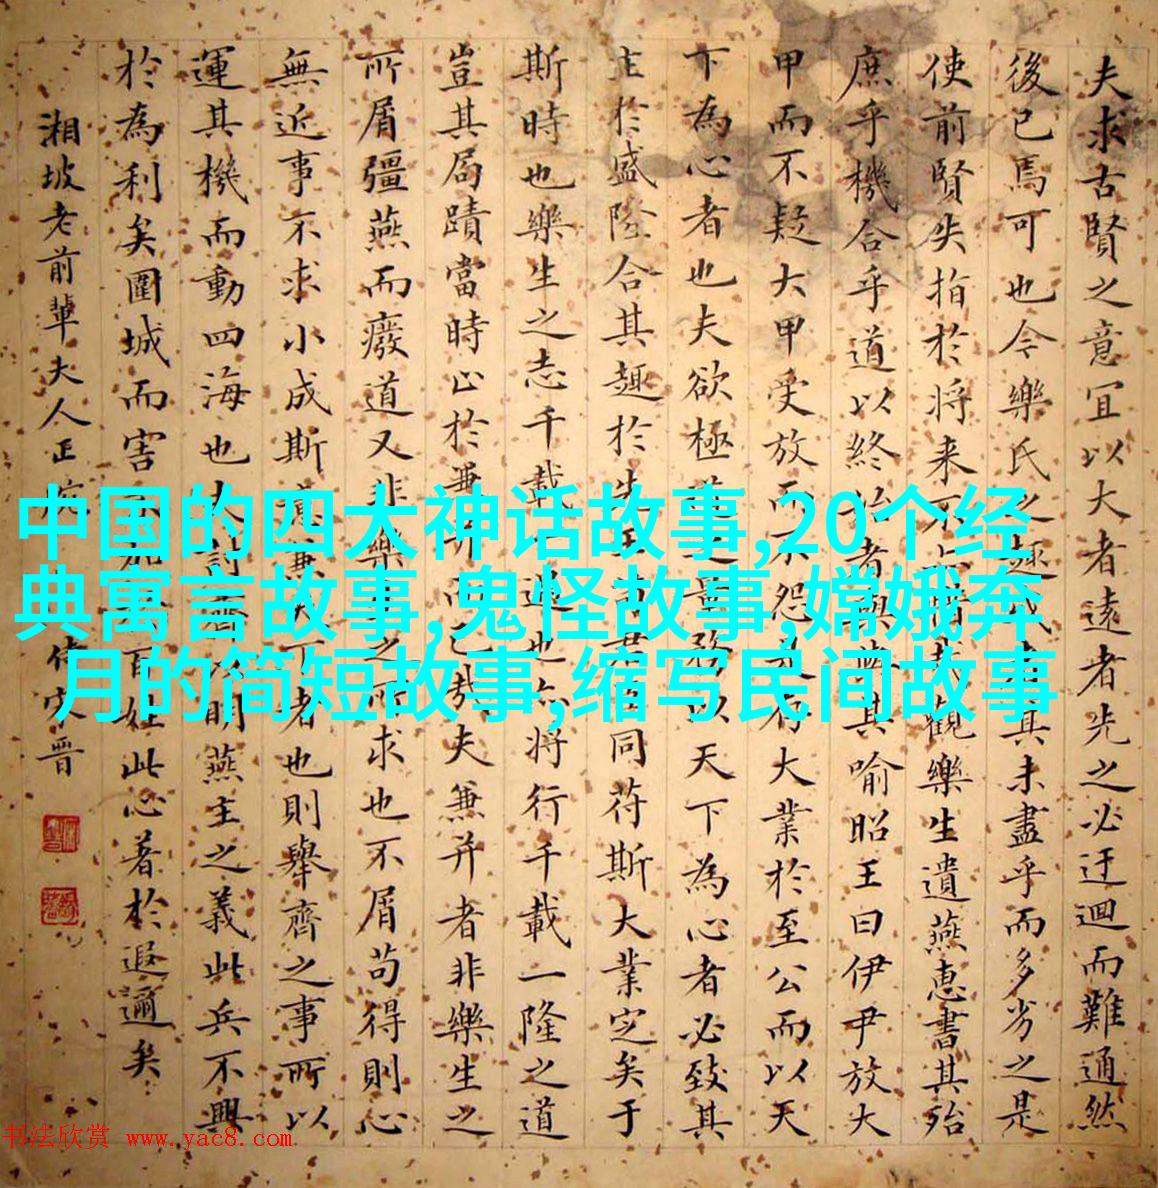 夫求古賢之意宜以大者遠者先之必迂迴而難通然
後已焉可也今樂氏之趣或者其未盡乎而多劣之是
使前賢失指於將来不亦惜哉觀樂生遺燕惠書其殆
庶乎機合乎道以終始者與其喻昭王曰伊尹放大
甲而不疑大甲受放而不怨是存大業於至公而以天
下為心者也夫欲極道之量務以天下為心者必致其
主於盛隆合其趣於先王苟君臣同符斯大業定矣于
斯時也樂生之志千載一遇也亦將行千載一隆之道
豈其局蹟當時止於兼并而已哉夫兼并者非樂生之
所屑彊燕而廢道又非樂生之所求也不屑苟得則心
無近事不求小成斯意兼天下者也則舉齊之事所以
運其機而動四海也夫討齊以明燕主之義此兵不興
於為利矣圍城而害不加於百姓此心著於遐邇矣
湘坡老前輩夫人正腕 侍宋晋
中国的四大神话故事,20个经
典寓言故事,鬼怪故事,嫦娥奔
月的简短故事,缩写民间故事
书法欣赏 www.yac8.com